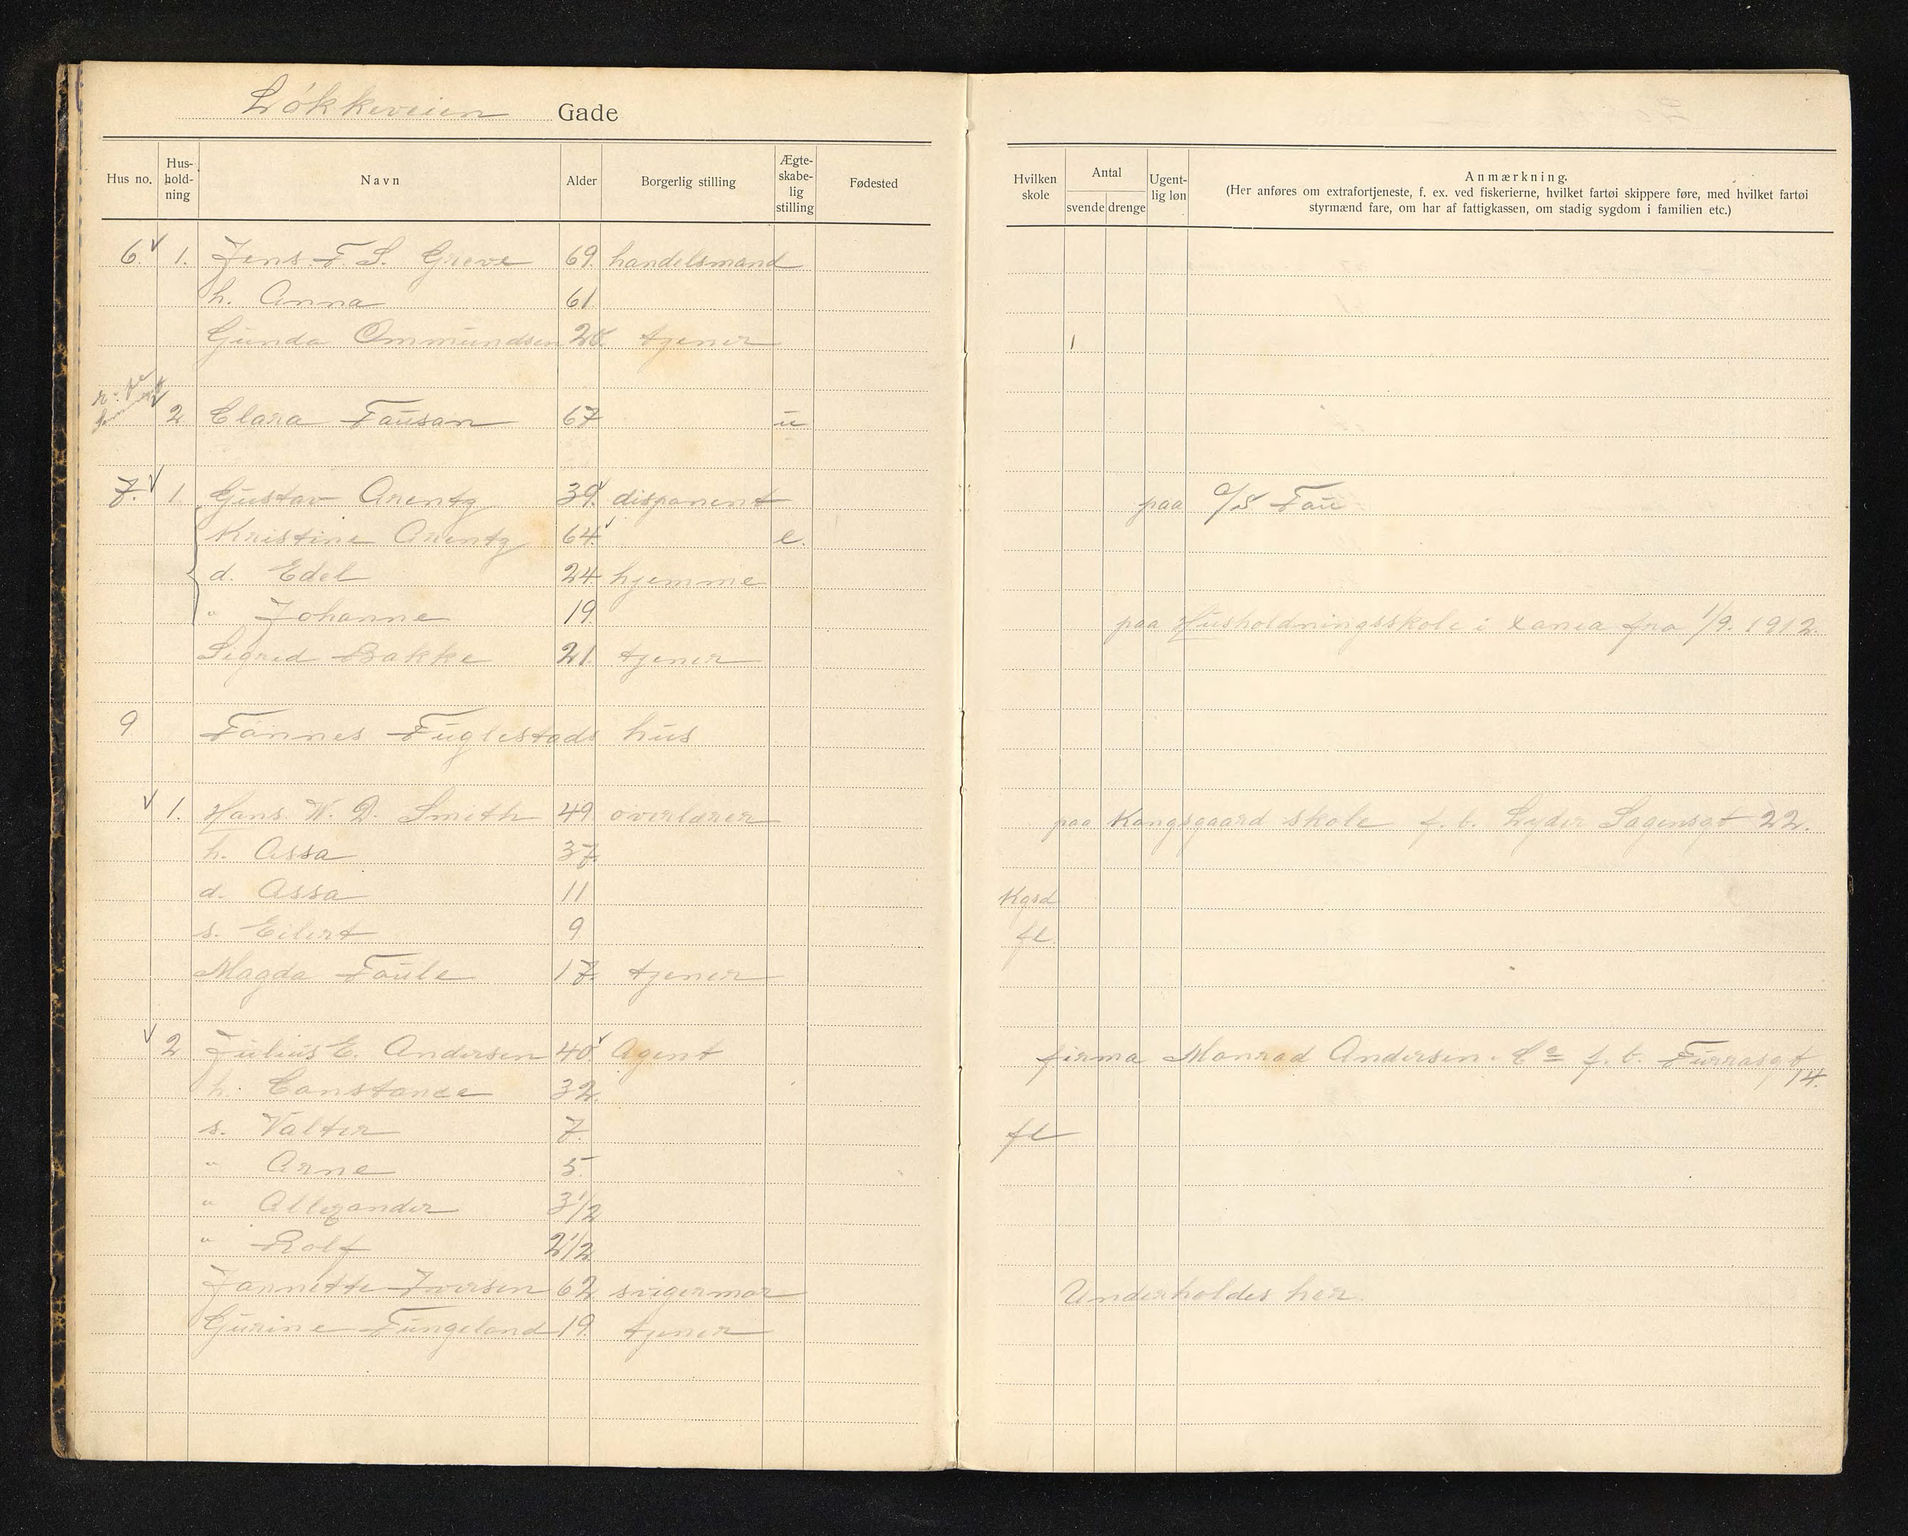 Løkkeveien Gade
Hus no. Hus-hold-ning Navn Alder Borgerlig stilling Ægte-skabe-lig stilling Fødested Hvilken skole Antal svende drenge Ugent-lig løn Anmærkning.
(Her anføres om extrafortjeneste, f. ex. ved fiskerierne, hvilket fartøi skippere føre, med hvilket fartøi
styrmænd fare, om har af fattigkassen, om stadig sygdom i familien etc.)
6. 1. Jens F. S. Greve 69. handelsmand
h. Anna 61
Gunda Ommundsen tjener
2 Clara Fausan 67 u
7. 1. Gustav Arentz 39. disponent paa A/S Fau
Kristine Arentz 64. e.
d. Edel 24 hjemme
" Johanne 19. paa Husholdningsskole i Xania fra 1/9. 1912.
Sigrid Bakke 21. tjener
9 Tønnes Fuglestads hus
1. Hans W. D. Smith 49. overlærer paa Kongsgaard skole f. b. Lyder Sagensgt 22.
h. Assa 37.
d. Assa 11 Kgsd
s. Eilert 9 fl
Magda 17. tjener
2 Julius E. Andersen 40 Agent firma Monrad Andersen. Co f. b.
14.
h. Constance 32.
s. Valter 7. fl
" Arne 5
" Allexander 3 1/2
" Rolf 2 1/2
Jannette Iversen 62 svigermor Underholdes her.
Gurine Tungeland 19. tjener